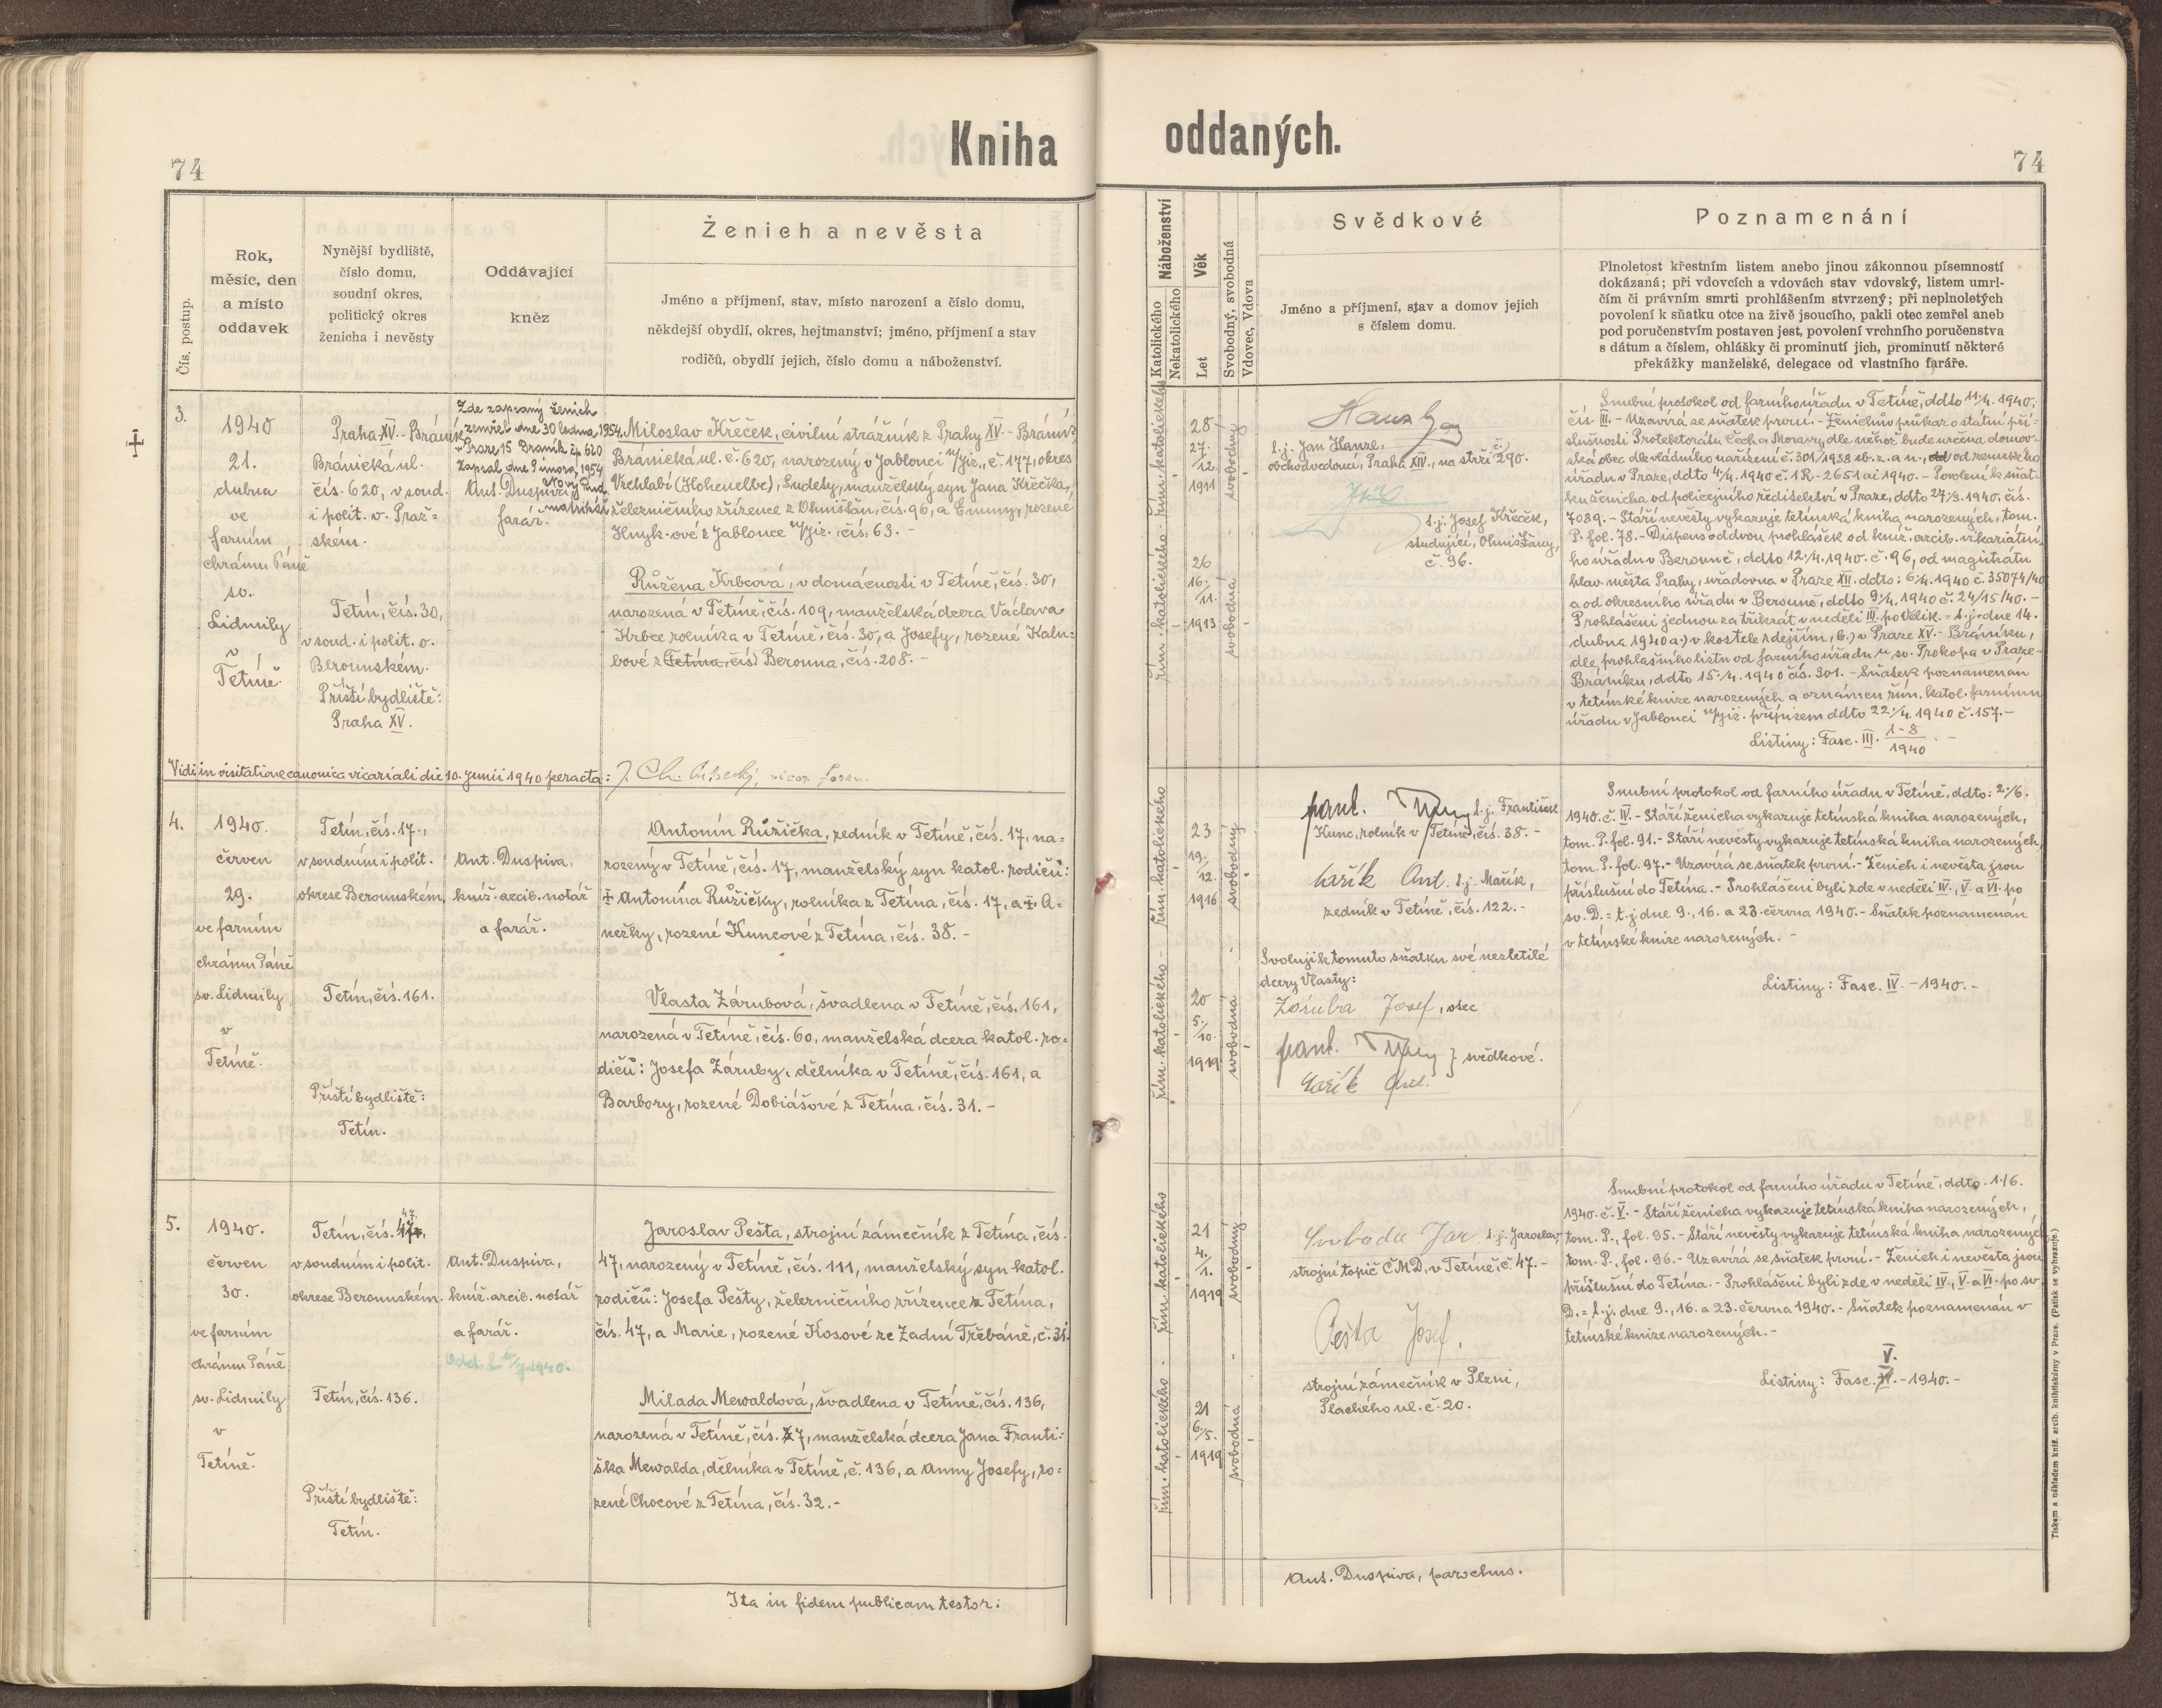 74
Kniha
Čís. postup.
Rok,
měsíc, den
a místo
oddavek
Nynější bydliště,
číslo domu,
soudní okres,
politický okres
ženicha i nevěsty
Oddávající
kněz
Ženich a nevěsta
Jméno a příjmení, stav, místo narození a číslo domu,
někdejší obydlí, okres, hejtmanství; jméno, příjmení a stav
rodičů, obydlí jejich, číslo domu a náboženství.
3.
1940
21.
dubna
ve
farním
chrámu Páně
sv.
Lidmily
v
Tetíně.
Praha XV.-Bráník
Bránická ul.
čís. 620, v soud.
i polit. o. Praž=
ském.
Tetín, čís. 30,
v soud. i polit. o.
Berounském.
Příští bydliště:
Praha XV.
Zde zapsaný ženich
zemřel dne 30 ledna 1954
v Praze 15 Braník čp 620
Zapsal dne 9 února 1954
Ant. Duspiva,
farář.
matrikář
Miloslav Křeček, civilní strážník z Prahy XV.-Bráník,
Bránická ul. č. 620, narozený v Jablonci n/Jiz., č. 177, okres
Vrchlabí (Hohenelbe), Sudety, manželský syn Jana Křečka,
železničního zřízence z Ohnišťan, čís. 96, a Emmy, rozené
Hnyk-ové z Jablonce n/Jiz. čís. 63.-
Růžena Krbcová, v domácnosti v Tetíně, čís. 30,
narozená v Tetíně, čís. 109, manželská dcera Václava
Krbce rolníka v Tetíně, čís. 30, a Josefy, rozené Kalu=
bové z (Tetína, čís) Berouna, čís. 208.-
Vidi in visitatione canonica vicariali die 10. Junii 1940 peracta:
4.
1940.
červen
29.
ve farním
chrámu Páně
sv. Lidmily
v
Tetíně.
Tetín, čís. 17.,
v soudním i polit.
okrese Berounském,
Tetín, čís. 161.
Příští bydliště:
Tetín.
Ant. Duspiva,
kníž. arcib. notář
a farář.
Antonín Růžička, zedník v Tetíně, čís. 17, na=
rozený v Tetíně, čís. 17, manželský syn katol. rodičů:
‡ Antonína Růžičky, rolníka z Tetína, čís. 17, a ‡ A=
nežky, rozené Kuncové z Tetína, čís. 38.-
Vlasta Zárubová, švadlena v Tetíně, čís. 161,
narozená v Tetíně, čís. 60, manželská dcera katol. ro=
dičů: Josefa Záruby, dělníka v Tetíně, čís. 161, a
Barbory, rozené Dobiášové z Tetína, čís. 31.-
5.
1940.
červen
30.
ve farním
chrámu Páně
sv. Lidmily
v
Tetíně.
Tetín, čís. 47,
v soudním i polit.
okrese Berounském.
Tetín, čís. 136.
Příští bydliště:
Tetín.
Ant. Duspiva,
kníž. arcib. notář
a farář.
Jaroslav Pešta, strojní zámečník z Tetína, čís.
47, narozený v Tetíně, čís. 111, manželský syn katol.
rodičů: Josefa Pešty, železničního zřízence z Tetína,
čís. 47, a Marie, rozené Kosové ze Zadní Třebáně, č. 31.
Milada Mewaldová, švadlena v Tetíně, čís. 136,
narozená v Tetíně, čís. 77, manželská dcera Jana Franti=
ška Mewalda, dělníka v Tetíně, č. 136, a Anny Josefy, ro=
zené Chocové z Tetína, čís. 32.-
Ita in fidem publicam testor:
oddaných.
74
Katolického
Nekatolického
Náboženství
Věk
Let
Svobodný, svobodná
Vdovec, Vdova
Svědkové
Jméno a příjmení, stav a domov jejich
s číslem domu.
Poznamenání
Plnoletost křestním listem anebo jinou zákonnou písemností
dokázaná; při vdovcích a vdovách stav vdovský, listem umrl-
čím či právním smrti prohlášením stvrzený; při neplnoletých
povolení k sňatku otce na živě jsoucího, pakli otec zemřel aneb
pod poručenstvím postaven jest, povolení vrchního poručenstva
s dátum a číslem, ohlášky či prominutí jich, prominutí některé
překážky manželské, delegace od vlastního faráře.
řím. katolického
28
27./12.
1911
svobodný
řím. katolického
26
16./11.
1913
svobodná
t. j. Jan Hanzl,
obchodvedoucí, Praha XIV., na strži č. 290.
t. j. Josef Křeček,
studující, Ohnišťany,
č. 96.
Snubní protokol od farního úřadu v Tetíně, ddto 11./4. 1940,
čís. III.- Uzavírá se sňatek první.- Ženichův průkaz o státní pří=
slušnosti Protektorátu Čech a Moravy, dle něhož bude určena domov=
ská obec dle vládního nařízení č. 301/1938 sb. z. a n., od zemského
úřadu v Praze, ddto 4./4. 1940 č. 1R-2651 ai 1940.- Povolení k sňat=
ku ženicha od policejního ředitelství v Praze, ddto 27/3. 1940. čís.
7089.- Stáří nevěsty vykazuje tetínská kniha narozených, tom.
P. fol. 78.- Dispens od dvou prohlášek od kníž. arcib. vikariátní=
ho úřadu v Berouně, ddto 12./4. 1940. č. 96, od magistrátu
hlav. města Prahy, úřadovna v Praze XII. ddto: 6/4. 1940 č. 35074/40
a od okresního úřadu v Berouně, ddto 9/4. 1940 č. 24/15/40.-
Prohlášeni jednou za třikrát v neděli III. po Velik. = t. j. dne 14.
dubna 1940 a.) v kostele zdejším, b.) v Praze XV.- Bráníku,
dle prohlašního listu od farního úřadu u sv. Prokopa v Praze-
Bráníku, ddto 15./4. 1940 čís. 301.- Sňatek poznamenán
v tetínské knize narozených a oznámen řím. katol. farnímu
úřadu v Jablonci n/jiz. přípisem ddto 22./4. 1940 č. 157.-
Listiny: Fasc. III. 1-8/1940.-
řím. katolického
23
19./12.
1916
svobodný
řím. katolického
20
5./10.
1919
svobodná
t. j. František
Kunc, rolník v Tetíně, čís. 38.-
Mařík Ant. t. j. Mařík,
zedník v Tetíně, čís. 122.-
Svoluji k tomuto sňatku své nezletilé
dcery Vlasty:
Záruba Josef, otec
} svědkové.
Mařík Ant.
Snubní protokol od farního úřadu v Tetíně, ddto: 2./6.
1940. č. IV.- Stáří ženicha vykazuje tetínská kniha narozených,
tom. P. fol. 91.- Stáří nevěsty vykazuje tetínská kniha narozených,
tom. P. fol. 97.- Uzavírá se sňatek první.- Ženich i nevěsta jsou
příslušni do Tetína.- Prohlášeni byli zde v neděli IV., V. a VI. po
sv. D. = t. j. dne 9., 16. a 23. června 1940.- Sňatek poznamenán
v tetínské knize narozených.-
Listiny: Fasc. IV.-1940.-
řím. katolického
21
4./1.
1919
svobodný
řím. katolického
21
6./5.
1919
svobodná
Svoboda Jar t. j. Jaroslav,
strojní topič ČMD, v Tetíně, č. 47.-
Pešta Josef,
strojní zámečník v Plzni,
Plachého ul. č. 20.
Snubní protokol od farního úřadu v Tetíně, ddto. 1./6.
1940. č. V.- Stáří ženicha vykazuje tetínská kniha narozených,
tom. P., fol. 95.- Stáří nevěsty vykazuje tetínská kniha narozených,
tom. P., fol. 96.- Uzavírá se sňatek první.- Ženich i nevěsta jsou
příslušni do Tetína.- Prohlášeni byli zde v neděli IV., V. a VI. po sv.
D. = t. j. dne 9., 16. a 23. června 1940.- Sňatek poznamenán v
tetínské knize narozených.-
Listiny: Fasc. V.-1940.-
Ant. Duspiva, parochus.
Tiskem a nákladem kníž. arcib. knihtiskárny v Praze. (Patisk se vyhrazuje.)